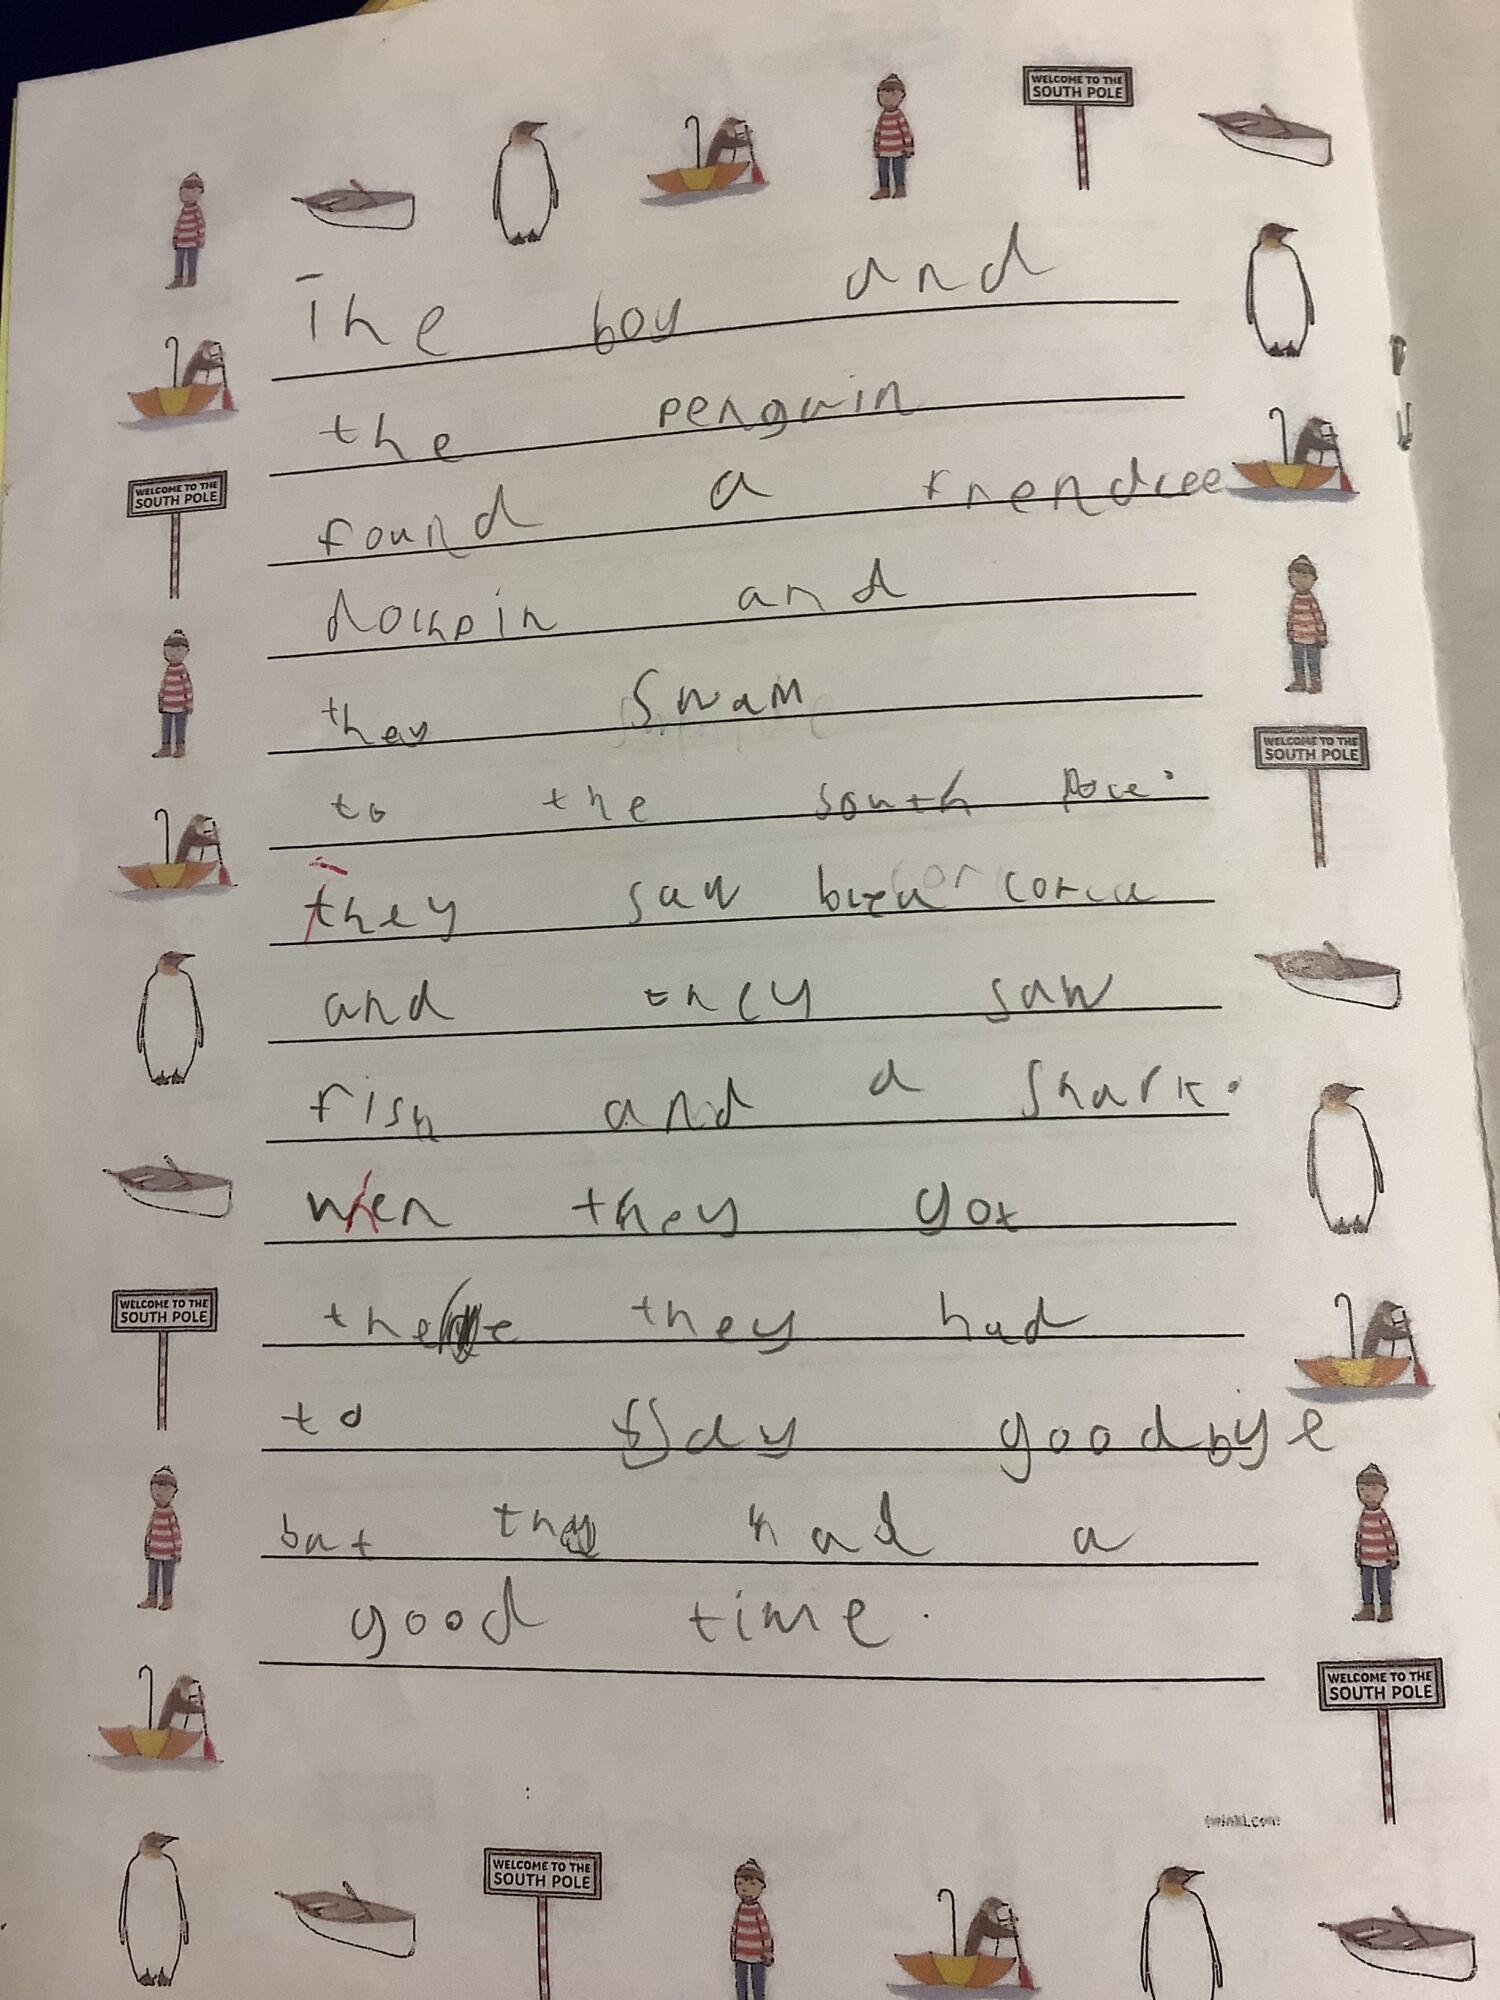 WELCOME TO THE
SOUTH POLE
The boy and
the penguin
found a frendlee
dolhpin and
they swam
to the south Pole.
they saw coral
and they saw
fish and a shark.
when they got
there they had
to say goodbye
but they had a
good time.
WELCOME TO THE
SOUTH POLE
WELCOME TO THE
SOUTH POLE
WELCOME TO THE
SOUTH POLE
WELCOME TO THE
SOUTH POLE
twinkl.com
WELCOME TO THE
SOUTH POLE